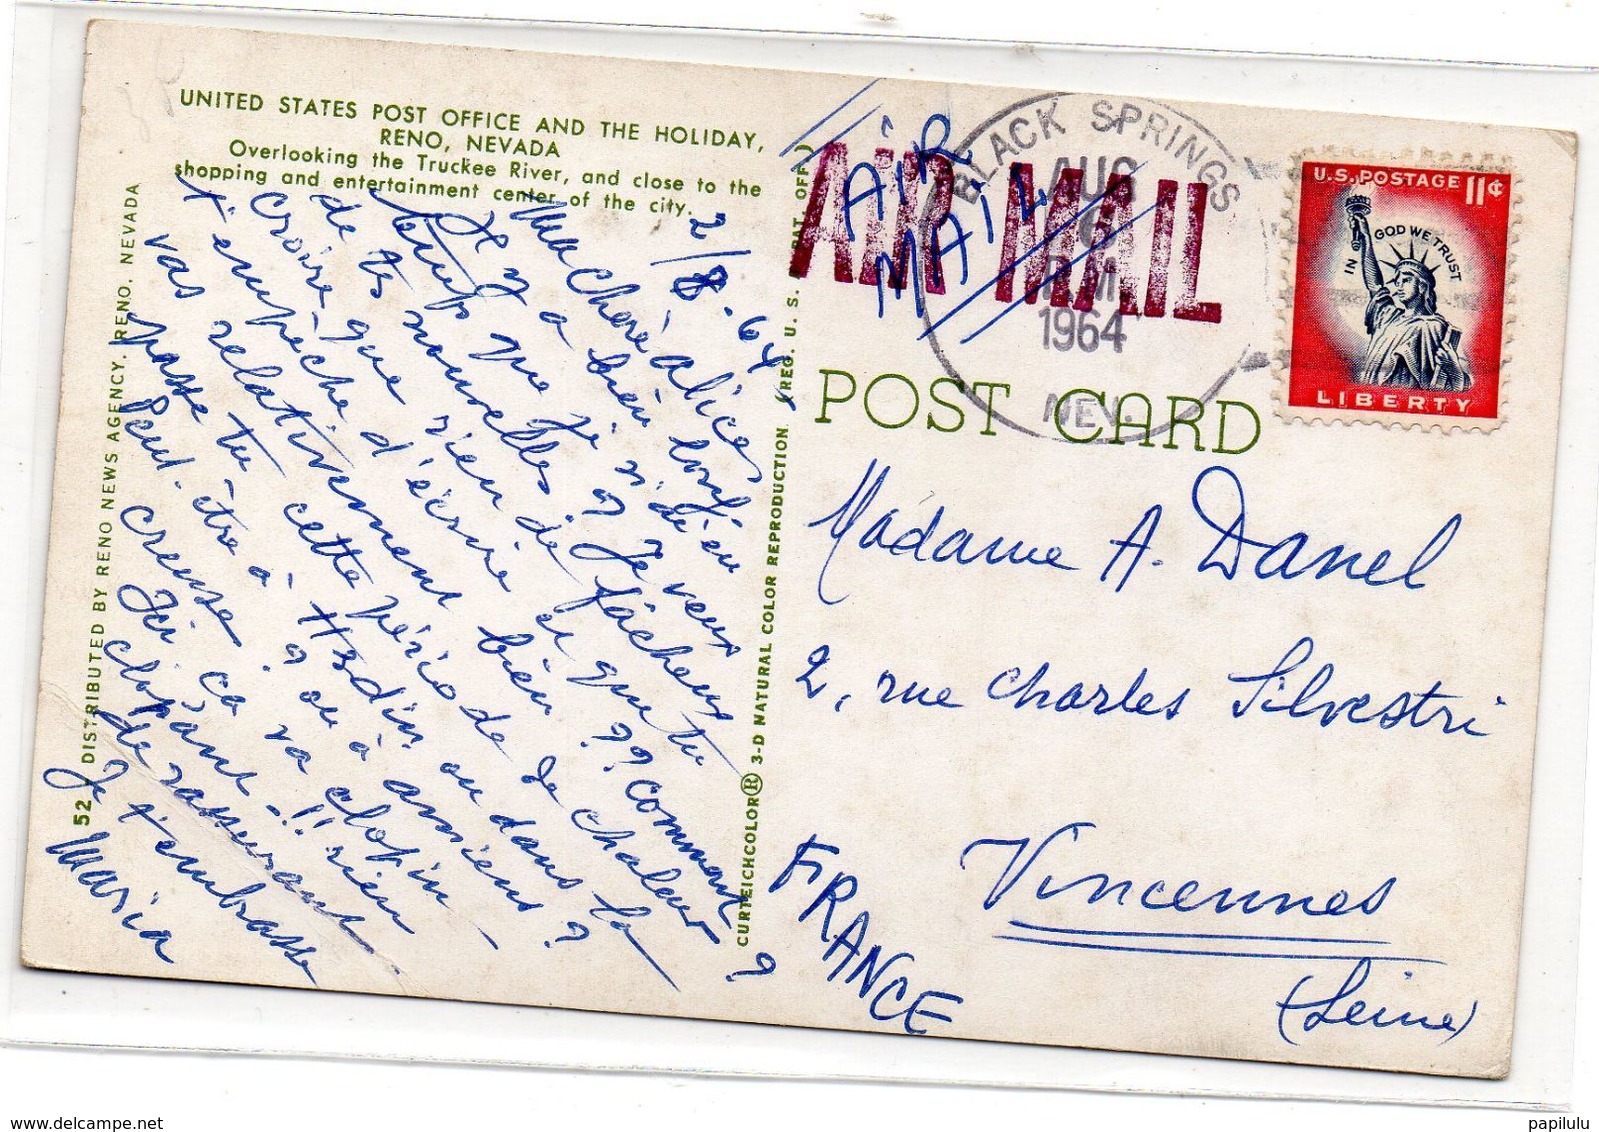 UNITED STATES POST OFFICE AND THE HOLIDAY,
RENO, NEVADA
Overlooking the Truckee River, and close to the
shopping and entertainment center of the city.
2/8-64
Ma chère Alice,
Il y a bien longtemps
que je n'ai eu
de tes nouvelles
et je veux
croire que rien de fâcheux
t'empêche d'écrire et que tu
vas relativement bien ?? Comment
passe tu cette période de chaleur ?
Peut-être à Hodin ou dans la
creuse ? ou à Amiens ?
Ici ça va clopin
clopant -!! rien
de rassurant.
Je t'embrasse
Maria
52 DISTRIBUTED BY RENO NEWS AGENCY, RENO, NEVADA
CURTEICHCOLOR® 3-D NATURAL COLOR REPRODUCTION (REG. U. S. PAT. OFF.)
AIR MAIL
AIR
MAIL
BLACK SPRINGS
AUG
6
PM
1964
NEV.
U.S. POSTAGE 11¢
IN GOD WE TRUST
LIBERTY
POST CARD
Madame A. Danel
2, rue Charles Silvestri
Vincennes
(Seine)
FRANCE
papilulu